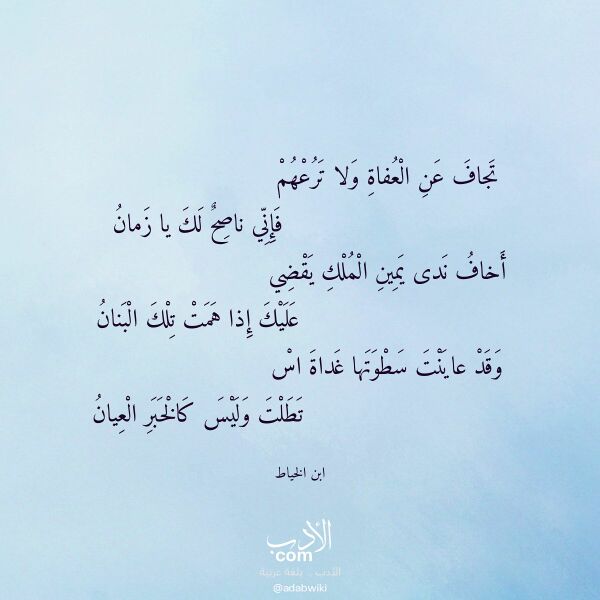 تَجافَ عَنِ الْعُفاةِ وَلا تَرُعْهُمْ
فَإِنِّي ناصِحٌ لَكَ يا زَمانُ
أَخافُ نَدى يَمِينِ الْمُلْكِ يَقْضِي
عَلَيْكَ إِذا هَمَتْ تِلْكَ الْبَنانُ
وَقَدْ عايَنْتَ سَطْوَتَها غَداةَ اسْ
تَطَلْتَ وَلَيْسَ كَالْخَبَرِ الْعِيانُ
ابن الخياط
الأدب
com
الأدب .. بلغة عربية
@adabwiki